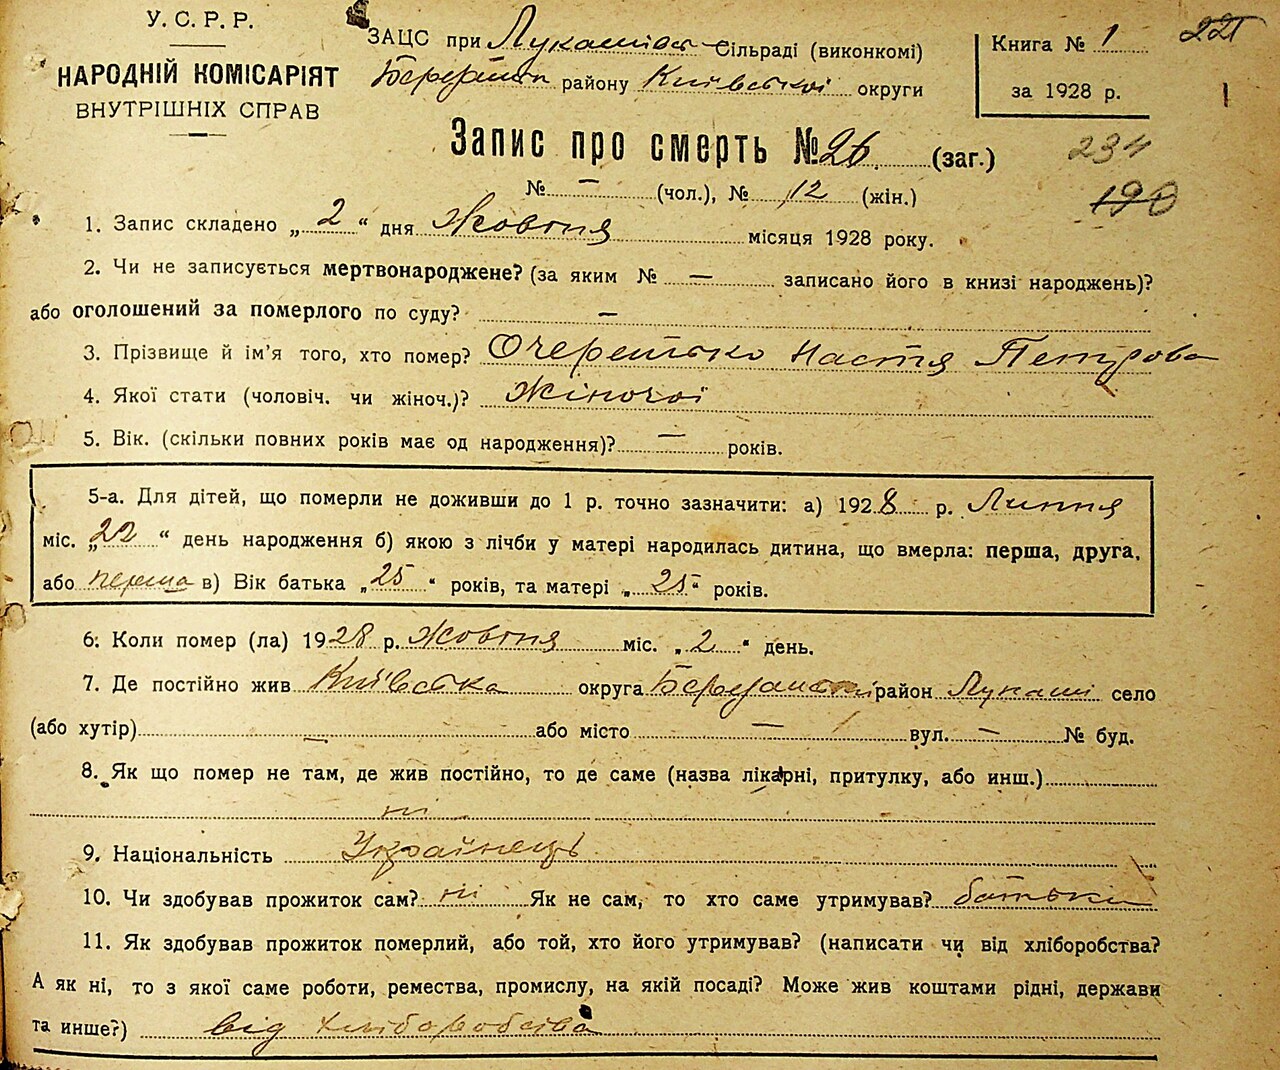 У. С. Р. Р.
НАРОДНІЙ КОМІСАРІЯТ
ВНУТРІШНІХ СПРАВ
ЗАЦС при Лукашівс Сільраді (виконкомі)
району Київської округи
Книга № 1
за 1928 р.
221
1
Запис про смерть № 26 (заг.)
234
№ — (чол.), № 12 (жін.)
190
1. Запис складено „ 2 “ дня Жовтня місяця 1928 року.
2. Чи не записується мертвонароджене? (за яким № — записано його в книзі народжень)?
або оголошений за померлого по суду? —
3. Прізвище й ім’я того, хто помер? Очеретько Настя Петрова
4. Якої стати (чоловіч. чи жіноч.)? Жіночої
5. Вік. (скільки повних років має од народження)? — років.
5-а. Для дітей, що померли не доживши до 1 р. точно зазначити: а) 1928 р. Липня
міс. „ 22 “ день народження б) якою з лічби у матері народилась дитина, що вмерла: перша, друга,
або перша в) Вік батька „ 25 “ років, та матері „ 25 “ років.
6. Коли помер (ла) 1928 р. Жовтня міс. „ 2 “ день.
7. Де постійно жив Київська округа Березанський район Лукаші село
(або хутір) — або місто — вул. — № буд.
8. Як що помер не там, де жив постійно, то де саме (назва лікарні, притулку, або инш.)
ні
9. Національність Українець
10. Чи здобував прожиток сам? ні Як не сам, то хто саме утримував? батьки
11. Як здобував прожиток померлий, або той, хто його утримував? (написати чи від хліборобства?
А як ні, то з якої саме роботи, ремества, промислу, на якій посаді? Може жив коштами рідні, держави
та инше?) від хліборобства